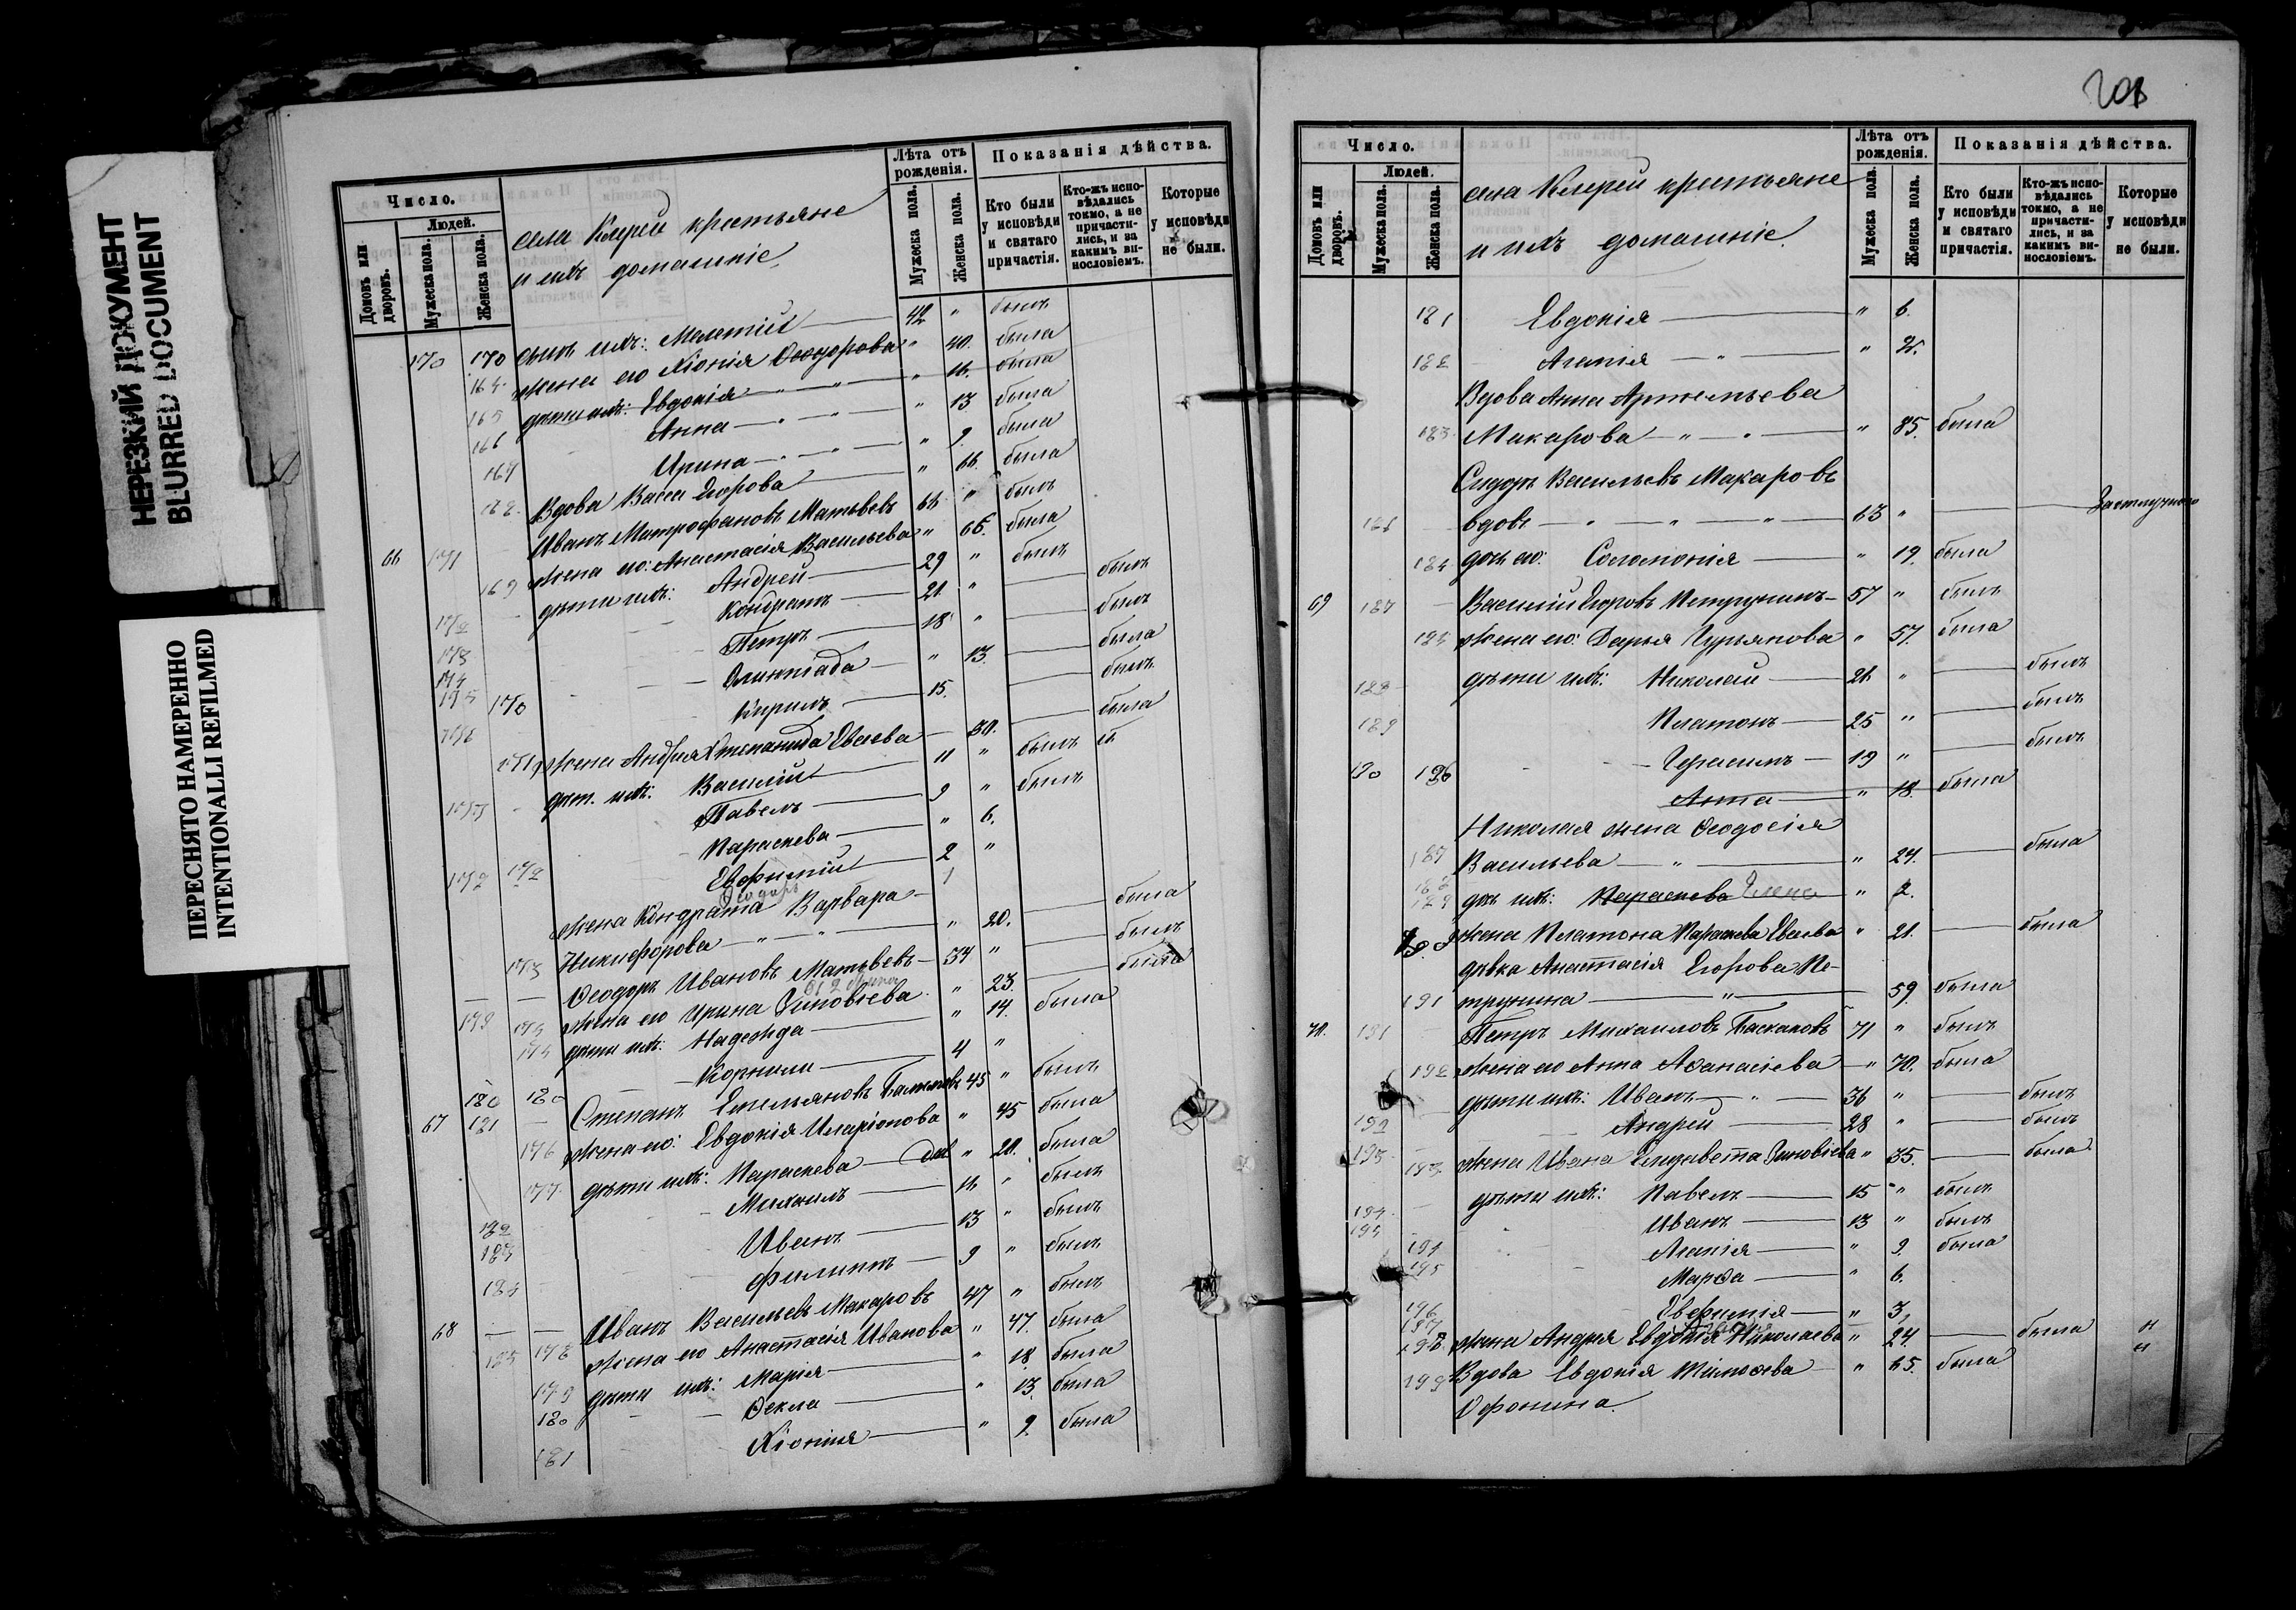 НЕРЕЗКИЙ ДОКУМЕНТ
BLURRED DOCUMENT
ПЕРЕСНЯТО НАМЕРЕННО
INTENTIONALLI REFILMED
Число.
Людей.
Домовъ или дворовъ.
Мужеска пола.
Женска пола.
села крестьяне
и ихъ домашніе.
Лѣта отъ рожденія.
Мужеска пола.
Женска пола.
Показанія дѣйства.
Кто были у исповѣди и святаго причастія.
Кто-жъ исповѣдались токмо, а не причастились, и за какимъ винословіемъ.
Которые у исповѣди не были.
170 170 сынъ ихъ: Мелетій 42 " былъ
164 жена его Хіонія Ѳеодорова " 40. была
165 дѣти ихъ: Евдокія " 16. была
166 Анна " 13 была
167 Ирина " 9. была
168 Вдова Васса Егорова " 66. была
66 171 Иванъ Митрофановъ Матвѣевъ 66 " былъ
169 жена его: Анастасія Васильева " 65. была
дѣти ихъ: Андрей 29 " былъ
172 Кондратъ 21 " былъ
173 Петръ 18 " былъ
174 Олимпіада " 13. была
175 170 Кирилъ 15. былъ
176 171 жена Андрея Степанида Евсеева 30. была
дѣт. ихъ: Василій 11 " былъ
177 Павелъ 9 " былъ
Параскева " 6.
172 Евфимій 2 "
Ѳеодоръ 1
жена Кондрата Варвара
173 Никифорова " 20. была
Ѳеодоръ Ивановъ Матвѣевъ 34 " былъ
179 174 жена его Ирина Зиновіева " 23. была
дѣти ихъ: Надежда " 14. была
180 180 Корнили 4 "
67 181 Степанъ Емельяновъ 45 " былъ
176 жена его: Евдокія Иларіонова " 45 была
177 дѣти ихъ: Параскева " 20. была
182 Михаилъ 16 " былъ
183 Иванъ 13 " былъ
184 Филиппъ 9 " былъ
68 Иванъ Васильевъ Макаровъ 47 " былъ
185 178 жена его Анастасія Иванова " 47. была
179 дѣти ихъ: Марія " 18. была
180 Ѳекла " 13. была
181 Хіонія " 9. была
201
Число.
Людей.
Домовъ или дворовъ.
Мужеска пола.
Женска пола.
села крестьяне
и ихъ домашніе.
Лѣта отъ рожденія.
Мужеска пола.
Женска пола.
Показанія дѣйства.
Кто были у исповѣди и святаго причастія.
Кто-жъ исповѣдались токмо, а не причастились, и за какимъ винословіемъ.
Которые у исповѣди не были.
181 Евдокія " 6.
182 Агапія " 2.
Вдова Анна Артемьева
183 Макарова " 85. была
Сидоръ Васильевъ Макаровъ
186 вдовъ 63 "
184 дочь его: Соломонія " 19. была
69 187 Василій Егоровъ Петрунинъ 57 " былъ
жена его: Дарья Гурьянова " 57. была
188 дѣти ихъ: Николай 26 " былъ
189 Платонъ 25 " былъ
190 186 Герасимъ 19 " былъ
Анна " 18. была
Николая жена Ѳеодосія
187 Васильева " 24. была
дѣт. ихъ: Параскева Елена " 2.
жена Платона Параскева Евсеева " 21. была
дѣвка Анастасія Егорова Пе-
191 трунина " 59. была
70. 191 Петръ Михаиловъ Баскаковъ 71 " былъ
192 жена его Анна Аѳанасіева " 70. была
дѣти ихъ: Иванъ 36 " былъ
192 Андрей 28 " былъ
193 193 жена Ивана Елизавета Зиновіева " 35. была
194 дѣти ихъ: Павелъ 15 " былъ
195 Иванъ 13 " былъ
194 Агапія " 9. была
195 Марѳа " 6.
196 Евфимія " 3,
197
198 жена Андрея Евдокія Николаева " 24. была
199 Вдова Евдокія Тимоѳева " 65. была
Офонина.